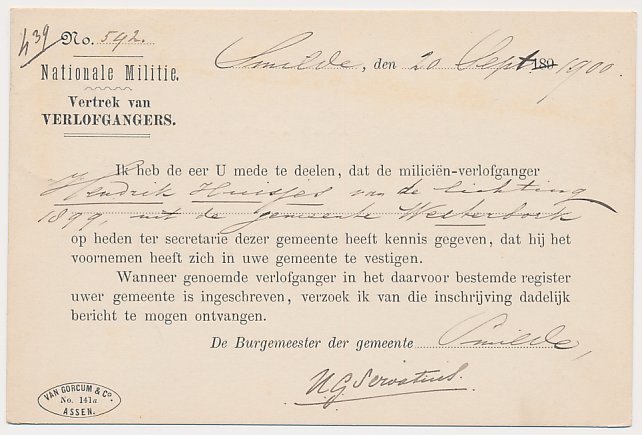 h39 No. 592.
Smilde, den 20 Sept. 189 1900.
Nationale Militie.
Vertrek van
VERLOFGANGERS.
Ik heb de eer U mede te deelen, dat de miliciën-verlofganger
Hendrik Huisjes van de lichting
1899, uit de gemeente Westerbork
op heden ter secretarie dezer gemeente heeft kennis gegeven, dat hij het
voornemen heeft zich in uwe gemeente te vestigen.
Wanneer genoemde verlofganger in het daarvoor bestemde register
uwer gemeente is ingeschreven, verzoek ik van die inschrijving dadelijk
bericht te mogen ontvangen.
De Burgemeester der gemeente Smilde,
N G Servatius.
VAN GORCUM & Co.
No. 141a
ASSEN.